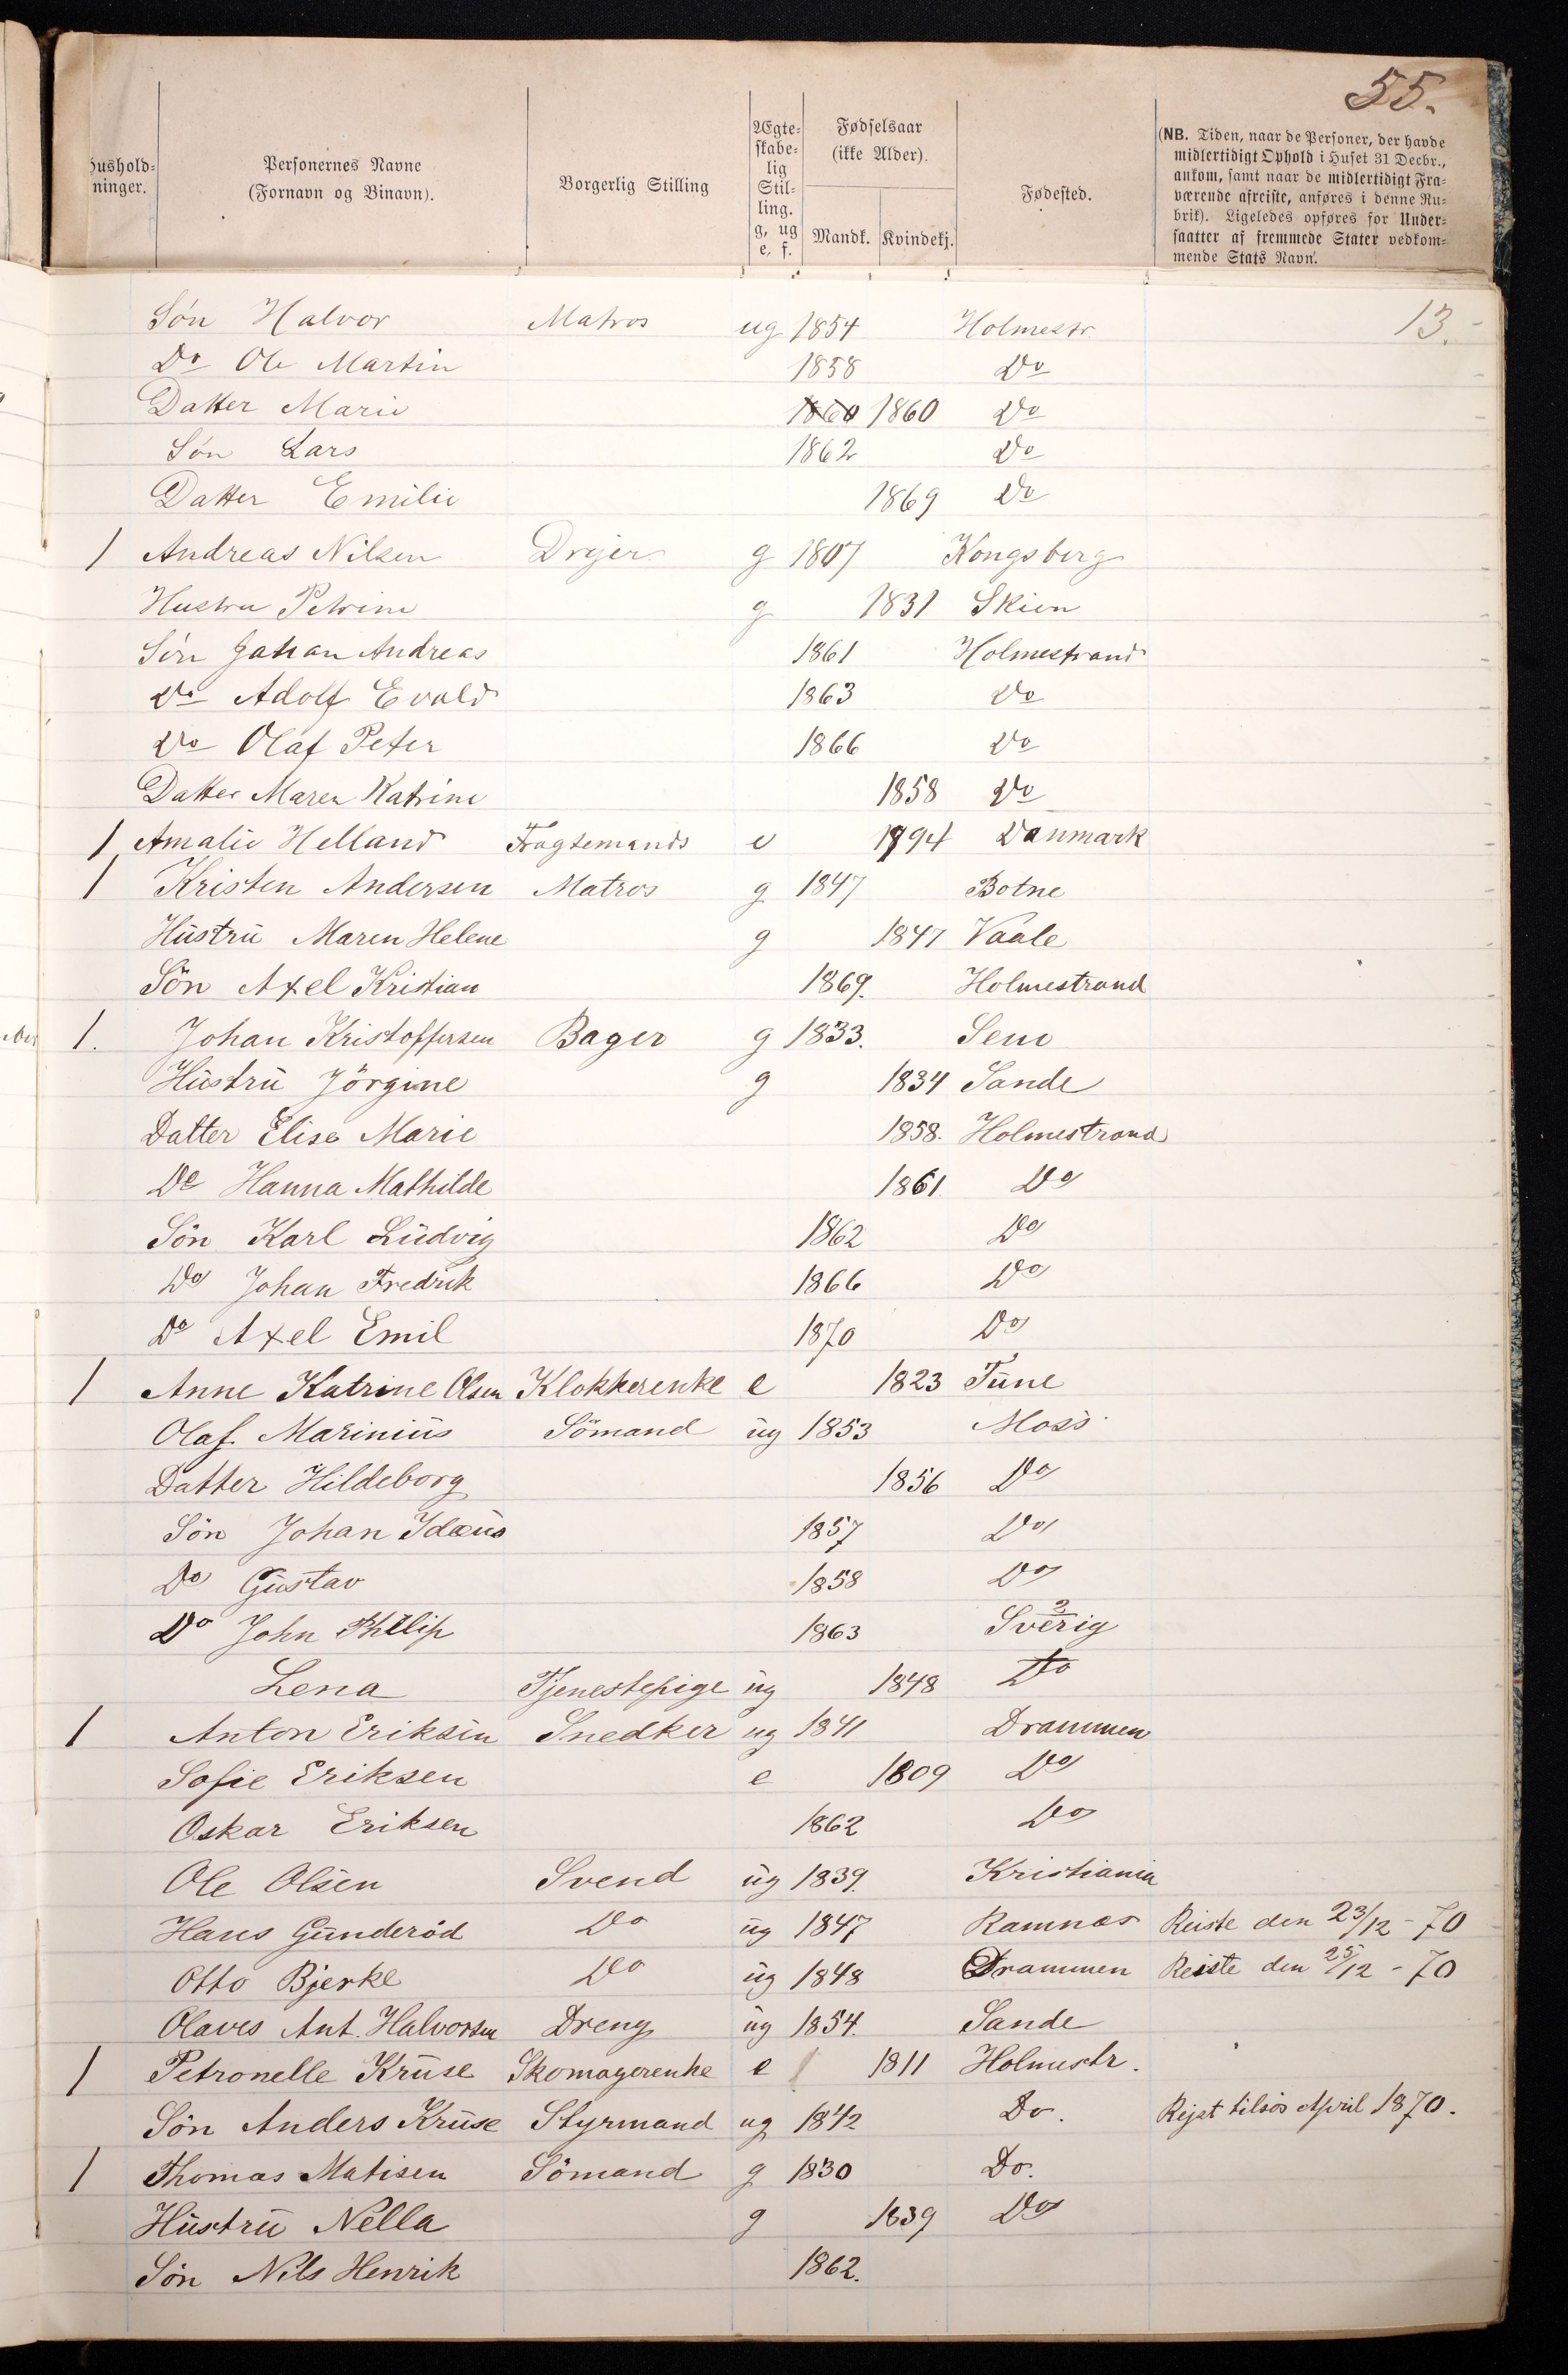 55.
Hushold-
ninger.
Personernes Navne
(Fornavn og Binavn).
Borgerlig Stilling
Ægte-
skabe-
lig
Stil-
ling.
g, ug
e, f.
Fødselsaar
(ikke Alder).
Mandk. Kvindekj.
Fødested.
(NB. Tiden, naar de Personer, der havde
midlertidigt Ophold i Huset 31 Decbr.,
ankom, samt naar de midlertidigt Fra-
værende afreiste, anføres i denne Ru-
brik). Ligeledes opføres for Under-
saatter af fremmede Stater vedkom-
mende Stats Navn.
Søn Halvor Matros ug 1854 Holmestr. 13.
Do Ole Martin 1858 Do
Datter Marie 1860 1860 Do
Søn Lars 1862 Do
Datter Emilie 1869 Do
1 Andreas Nilsen Drejer g 1807 Kongsberg
Hustru Petrine g 1831 Skien
Søn Johan Andreas 1861 Holmestrand
Do Adolf Evald 1863 Do
Do Olaf Peter 1866 Do
Datter Maren Katrine 1858 Do
1 Amalie Helland Fragtemands e 1794 Danmark
1 Kristen Andersen Matros g 1847 Botne
Hustrū Maren Helene g 1847 Vaale
Sön Axel Kristian 1869. Holmestrand
1. Johan Kristoffersen Bager g 1833. Sem
Hūstrū Jörgine g 1834 Sande
Datter Elise Marie 1858. Holmestrand
Do Hanna Mathilde 1861 Do
Sön Karl Lūdvig 1862 Do
Do Johan Fredrik 1866 Do
Do Axel Emil 1870 Do
1 Anne Katrine Olsen Klokkerenke e 1823 Tūne
Olaf Mariniūs Sömand ūg 1853 Moss
Datter Hildeborg 1856 Do
Sön Johan Idæūs 1857 Do
Do Gūstav 1858 Do
Do John Philip 1863 Sverig
Lena Tjenestepige ūg 1848 Do
1 Anton Eriksen Snedker ug 1841 Drammen
Sofie Eriksen e 1809 Do
Oskar Eriksen 1862 Do
Ole Olsen Svend ūg 1839. Kristiania
Hans Gūnderöd Do ūg 1847 Ramnæs Reiste den 23/12 - 70
Otto Bjerke Do ūg 1848 Drammen Reiste den 25/12 - 70
Olaves Ant. Halvorsen Dreng ūg 1854. Sande
1 Petronelle Krūse Skomagerenke e 1811 Holmestr.
Sön Anders Krūse Styrmand ug 1842 Do. Rejst tilsös April 1870.
1 Thomas Matisen Sömand g 1830 Do.
Hūstrū Nella g 1839 Do
Sön Nils Henrik 1862.